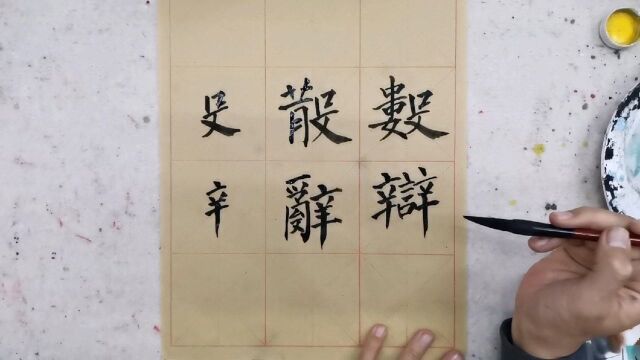 殳 散 數
辛 辭 辯